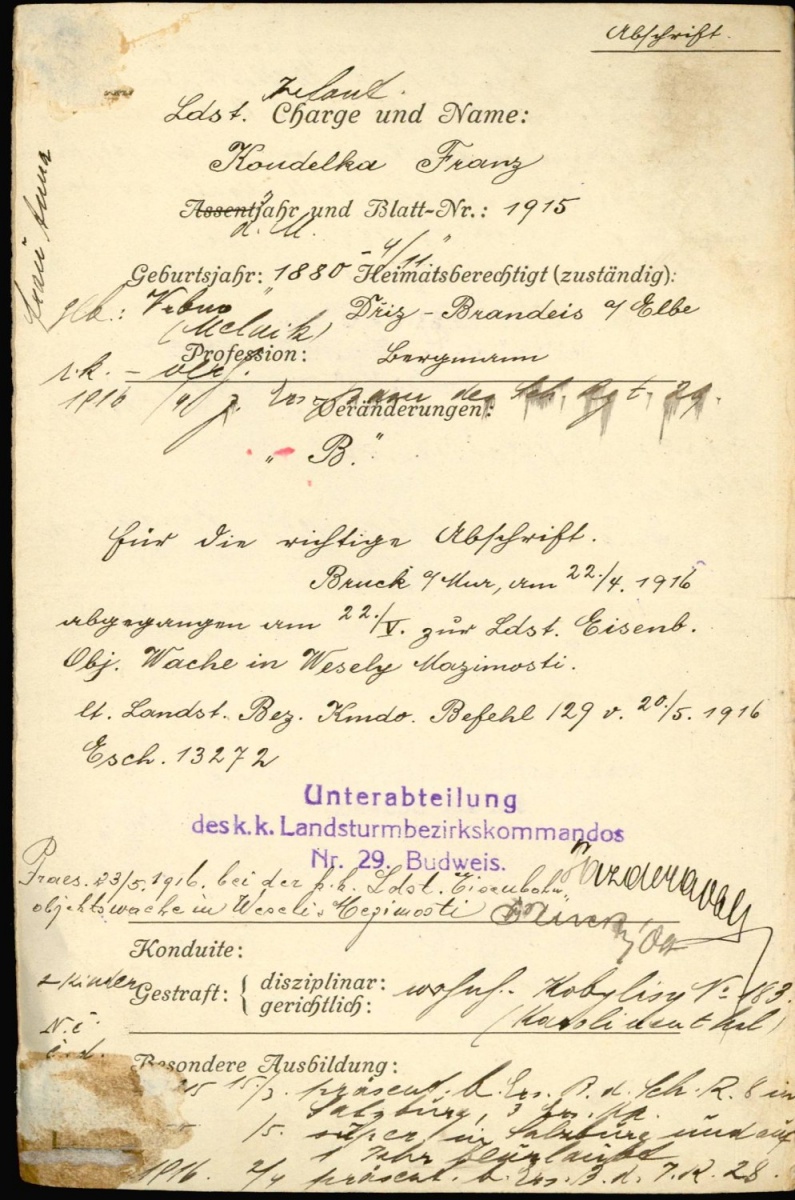 Abschrift.
Ldst.
Charge und Name:
Koudelka Franz
Assentjahr und Blatt-Nr.: 1915
4/11
Geburtsjahr: 1880 Heimatsberechtigt (zuständig):
geb.: Vrbno Dřiz - Brandeis a/Elbe
(Melnik)
Profession: Bergmann
r. k. –
1916
Veränderungen:
"B."
Für die richtige Abschrift.
Bruck a/Mur, am 22./4. 1916
abgegangen am 22./V. zur Ldst. Eisenb.
Obj. Wache in Wesely Mazimosti.
lt. Landst. Bez. Kmdo. Befehl 129 v. 20./5. 1916
Esch. 13272
Unterabteilung
des k. k. Landsturmbezirkskommandos
Nr. 29. Budweis.
Praes. 23/5. 1916. bei der k. k. Ldst. Eisenbahn
objektswache in Weseli Mezimosti
Konduite:
2 Kinder
Gestraft: { disziplinar:
gerichtlich:
wohnh. Kobylisy No 183.
(Karolinenthal)
Besondere Ausbildung:
15/3. präsent. b. Ers. B. d. Sch. R. 8 in
Salzburg,
/5. super. in Salzburg und auf
1 Jahr beurlaubt
1916. 2/4 präsent. b. Ers. B. d. I. R. 28.